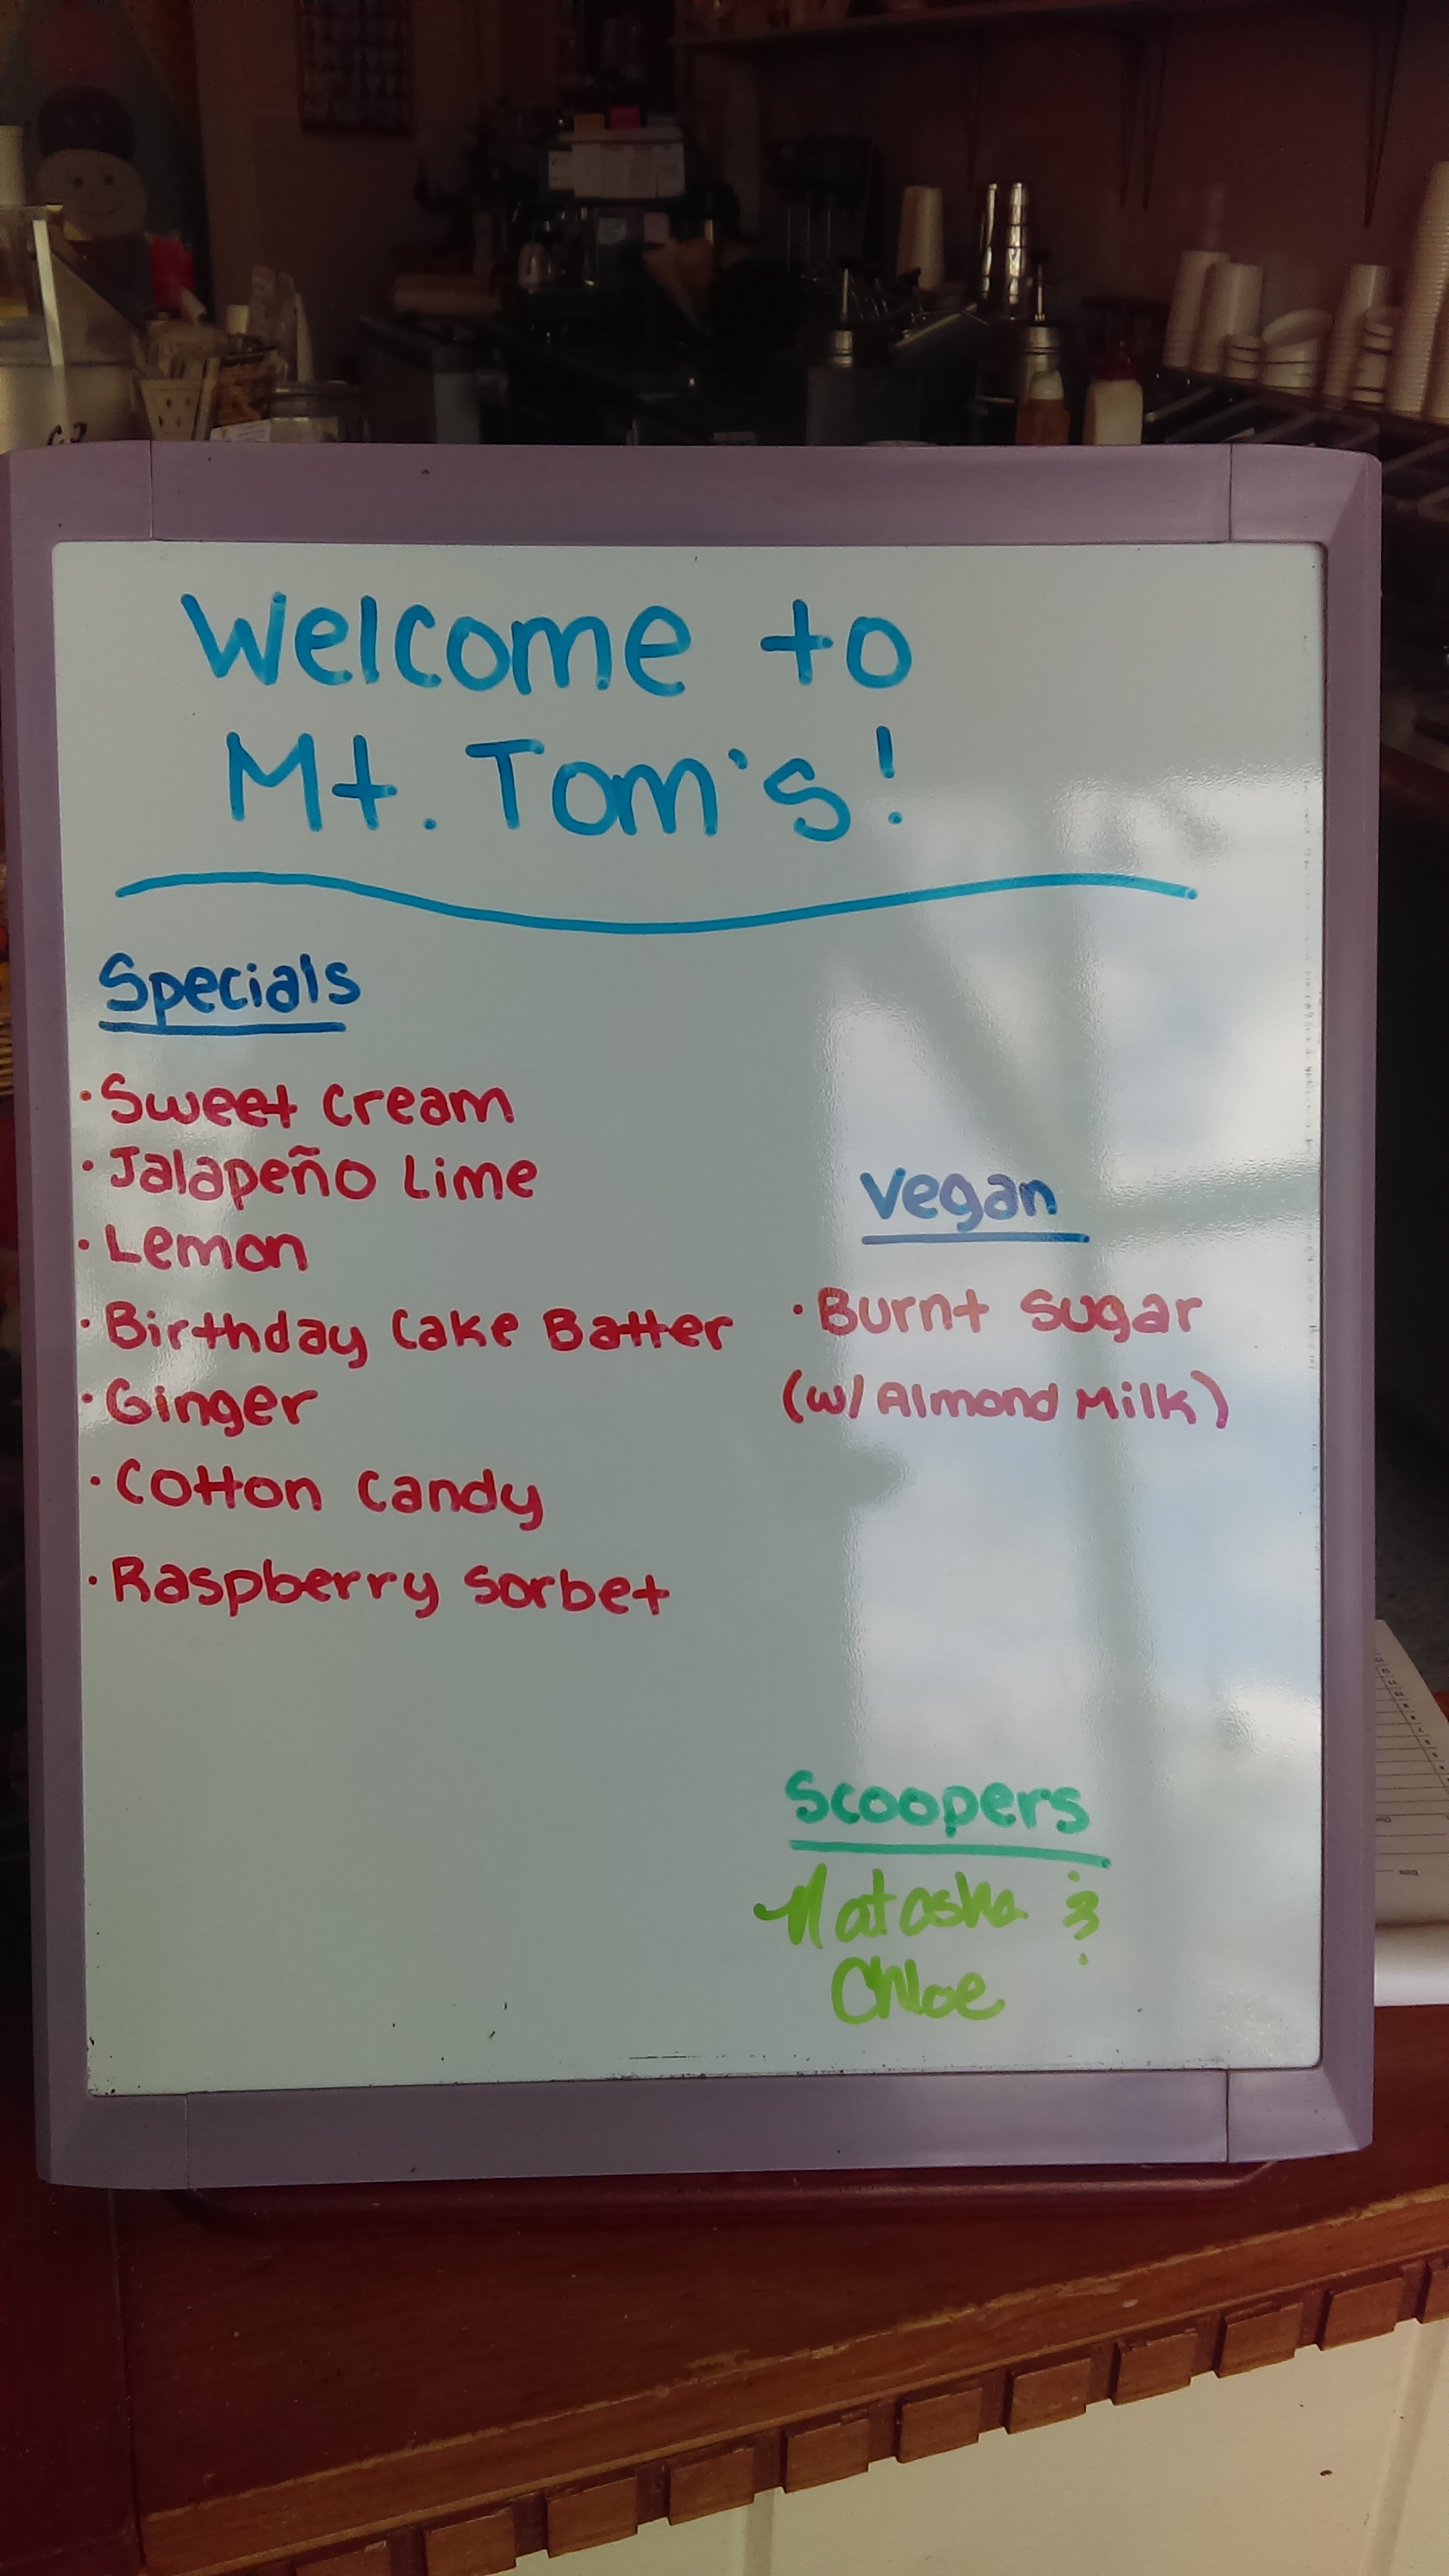 Welcome to
Mt. Tom's!
Specials
• Sweet Cream
• Jalapeño Lime
• Lemon
• Birthday Cake Batter
• Ginger
• Cotton Candy
• Raspberry Sorbet
Vegan
• Burnt Sugar
(w/ Almond Milk)
Scoopers
Natasha &
Chloe